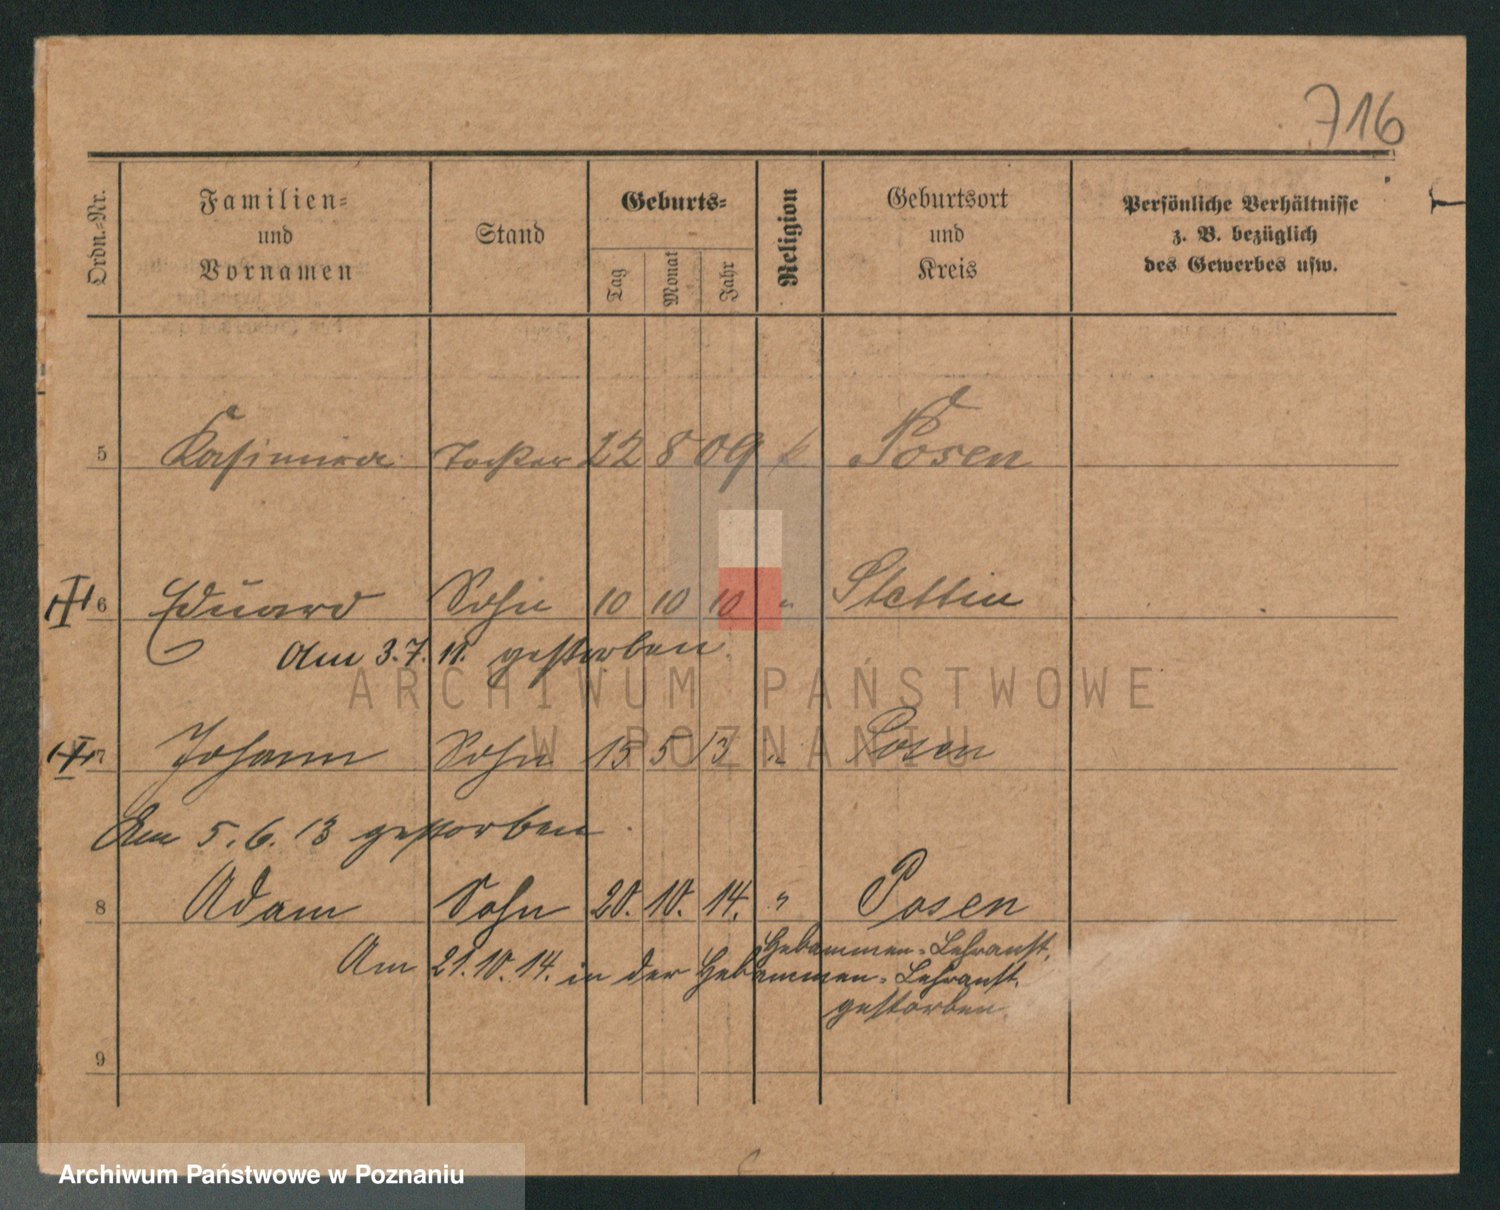 716
Ordn.-Nr.
Familien-
und
Vornamen
Stand
Geburts-
Tag
Monat
Jahr
Religion
Geburtsort
und
Kreis
Persönliche Verhältnisse
z. B. bezüglich
des Gewerbes usw.
5 Kasimira Tochter 22 8 09 k Posen
6 Eduard Sohn 10 10 10 " Stettin
Am 3.7.11. gestorben.
7 Johann Sohn 15 5 13 " Posen
Am 5.6.13 gestorben.
8 Adam Sohn 20. 10. 14. " Posen
Hebammen-Lehranst.
Am 21.10.14. in der Hebammen-Lehranst.
gestorben.
9
ARCHIWUM PAŃSTWOWE
W POZNANIU
Archiwum Państwowe w Poznaniu